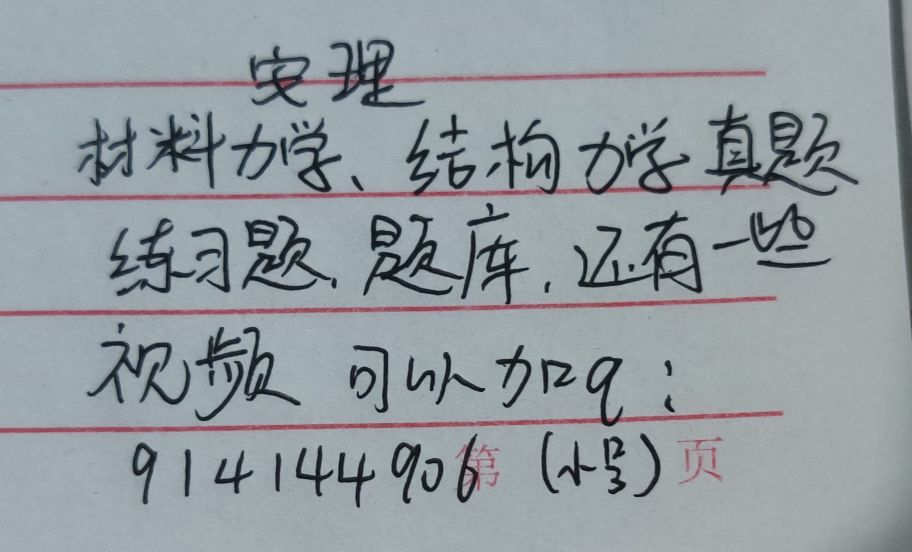 安理
材料力学、结构力学真题
练习题、题库、还有一些
视频 可以加q：
914144906 (小号)
第 页